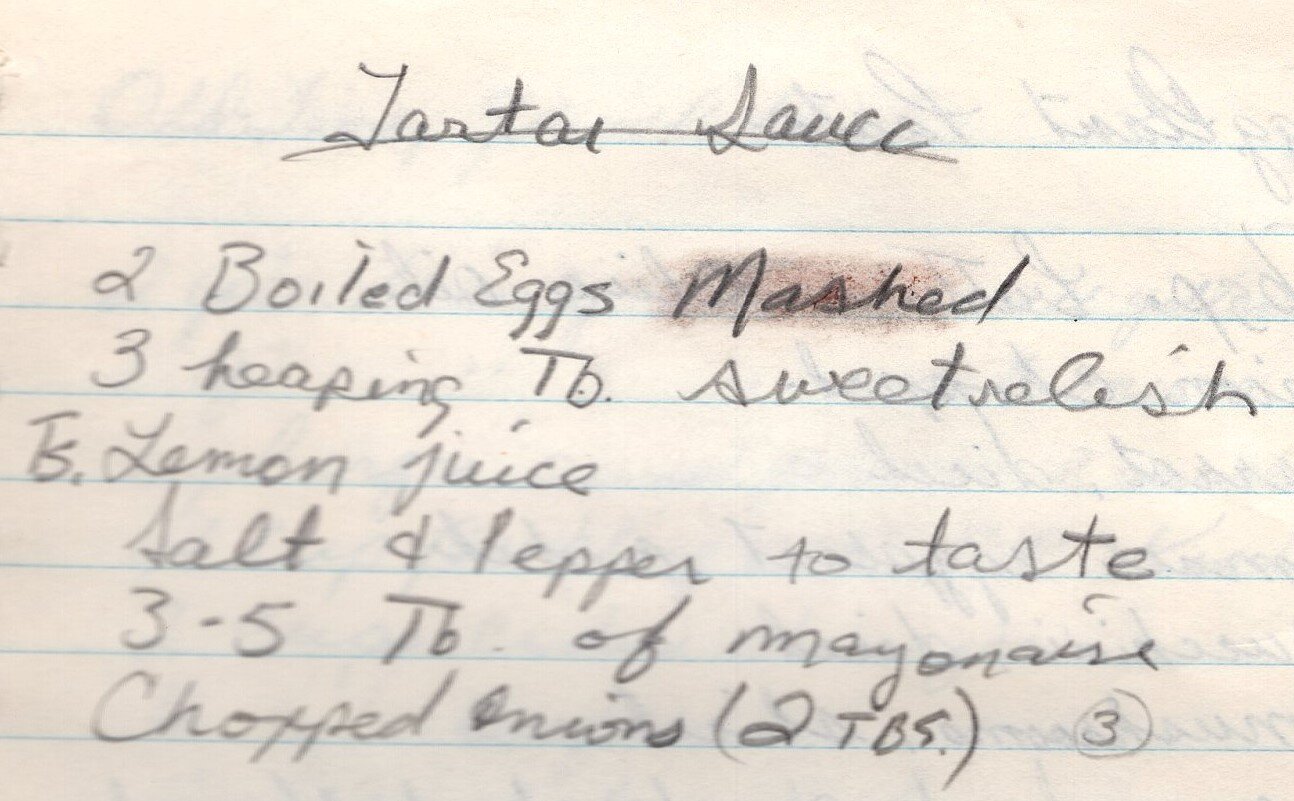 Tartar Sauce
2 Boiled Eggs Mashed
3 heaping Tb. sweet relish
Ts. Lemon juice
Salt & Pepper to taste
3-5 Tb. of mayonaise
Chopped Onions (2 TBS.) 3